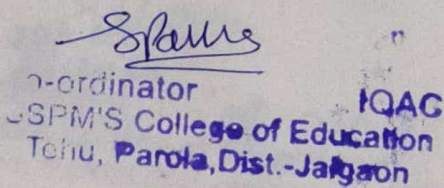 o-ordinator IQAC
SPM'S College of Education
Tehu, Parola, Dist.-Jalgaon